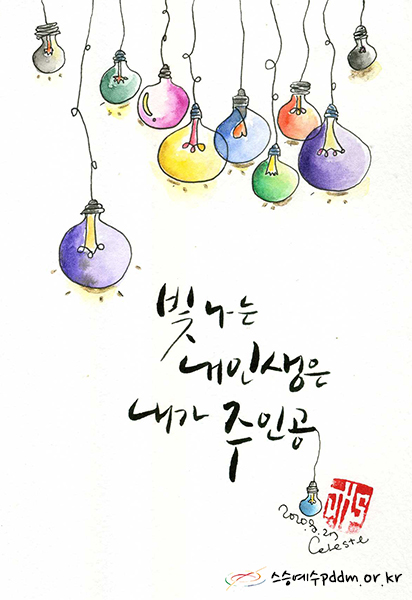 빛나는
내인생은
내가 주인공
JHS
Celeste
스승예수pddm.or.kr